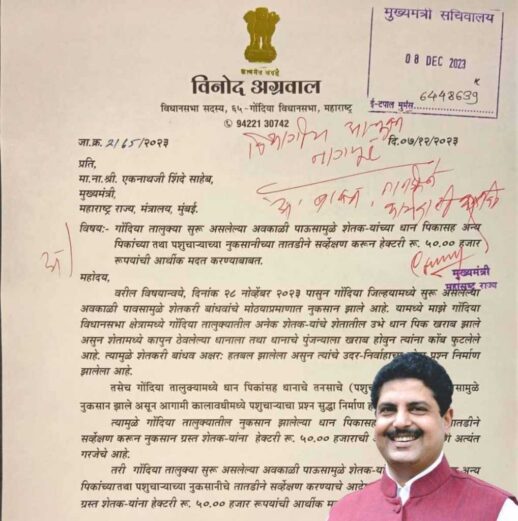 सत्यमेव जयते
विनोद अग्रवाल
विधानसभा सदस्य, ६५-गोंदिया विधानसभा, महाराष्ट्र
94221 30742
मुख्यमंत्री सचिवालय
08 DEC 2023
6448639
ई-टपाल
जा.क्र. 2165/२०२३
दि.०७/१२/२०२३
विभागीय आयुक्त
नागपूर
प्रति,
मा.ना.श्री. एकनाथजी शिंदे साहेब,
मुख्यमंत्री,
महाराष्ट्र राज्य, मंत्रालय, मुंबई.
विषय:- गोंदिया तालुक्या सुरू असलेल्या अवकाळी पाऊसामुळे शेतक-यांच्या धान पिकासह अन्य
पिकांच्या तथा पशुचाऱ्याच्या नुकसानीच्या तातडीने सर्व्हेक्षण करून हेक्टरी रू. ५०.०० हजार
रूपयांची आर्थिक मदत करण्याबाबत.
मुख्यमंत्री
महाराष्ट्र राज्य
महोदय,
वरील विषयान्वये, दिनांक २८ नोव्हेंबर २०२३ पासुन गोंदिया जिल्हयामध्ये सुरू असलेल्या
अवकाळी पावसामुळे शेतकरी बांधवांचे मोठयाप्रमाणात नुकसान झाले आहे. यामध्ये माझे गोंदिया
विधानसभा क्षेत्रामध्ये गोंदिया तालुक्यातील अनेक शेतक-यांचे शेतातील उभे धान पिक खराब झाले
असुन शेतामध्ये कापुन ठेवलेल्या धानाला तथा धानाचे पुंजन्याला खराब होवुन त्यांना कोंब फुटलेले
आहे. त्यामुळे शेतकरी बांधव अक्षर: हतबल झालेला असुन त्यांचे उदर-निर्वाहाचा प्रश्न निर्माण
झालेला आहे.
तसेच गोंदिया तालुक्यामध्ये धान पिकांसह धानाचे तनसाचे (पशु सामुळे
नुकसान झाले असून आगामी कालावधीमध्ये पशुचाऱ्याचा प्रश्न सुद्धा निर्माण
त्यामुळे गोंदिया तालुक्यातील नुकसान झालेल्या धान पिकाच्या तातडीने
सर्व्हेक्षण करून नुकसान ग्रस्त शेतक-यांना हेक्टरी रू. ५०.०० हजाराची अत्यंत
गरजेचे आहे.
तरी गोंदिया तालुक्या सुरू असलेल्या अवकाळी पाऊसामुळे शेतक- अन्य
पिकांच्या तथा पशुचाऱ्याच्या नुकसानीचे तातडीने सर्व्हेक्षण करण्याचे आदे
ग्रस्त शेतक-यांना हेक्टरी रू. ५०.०० हजार रूपयांची आर्थिक म